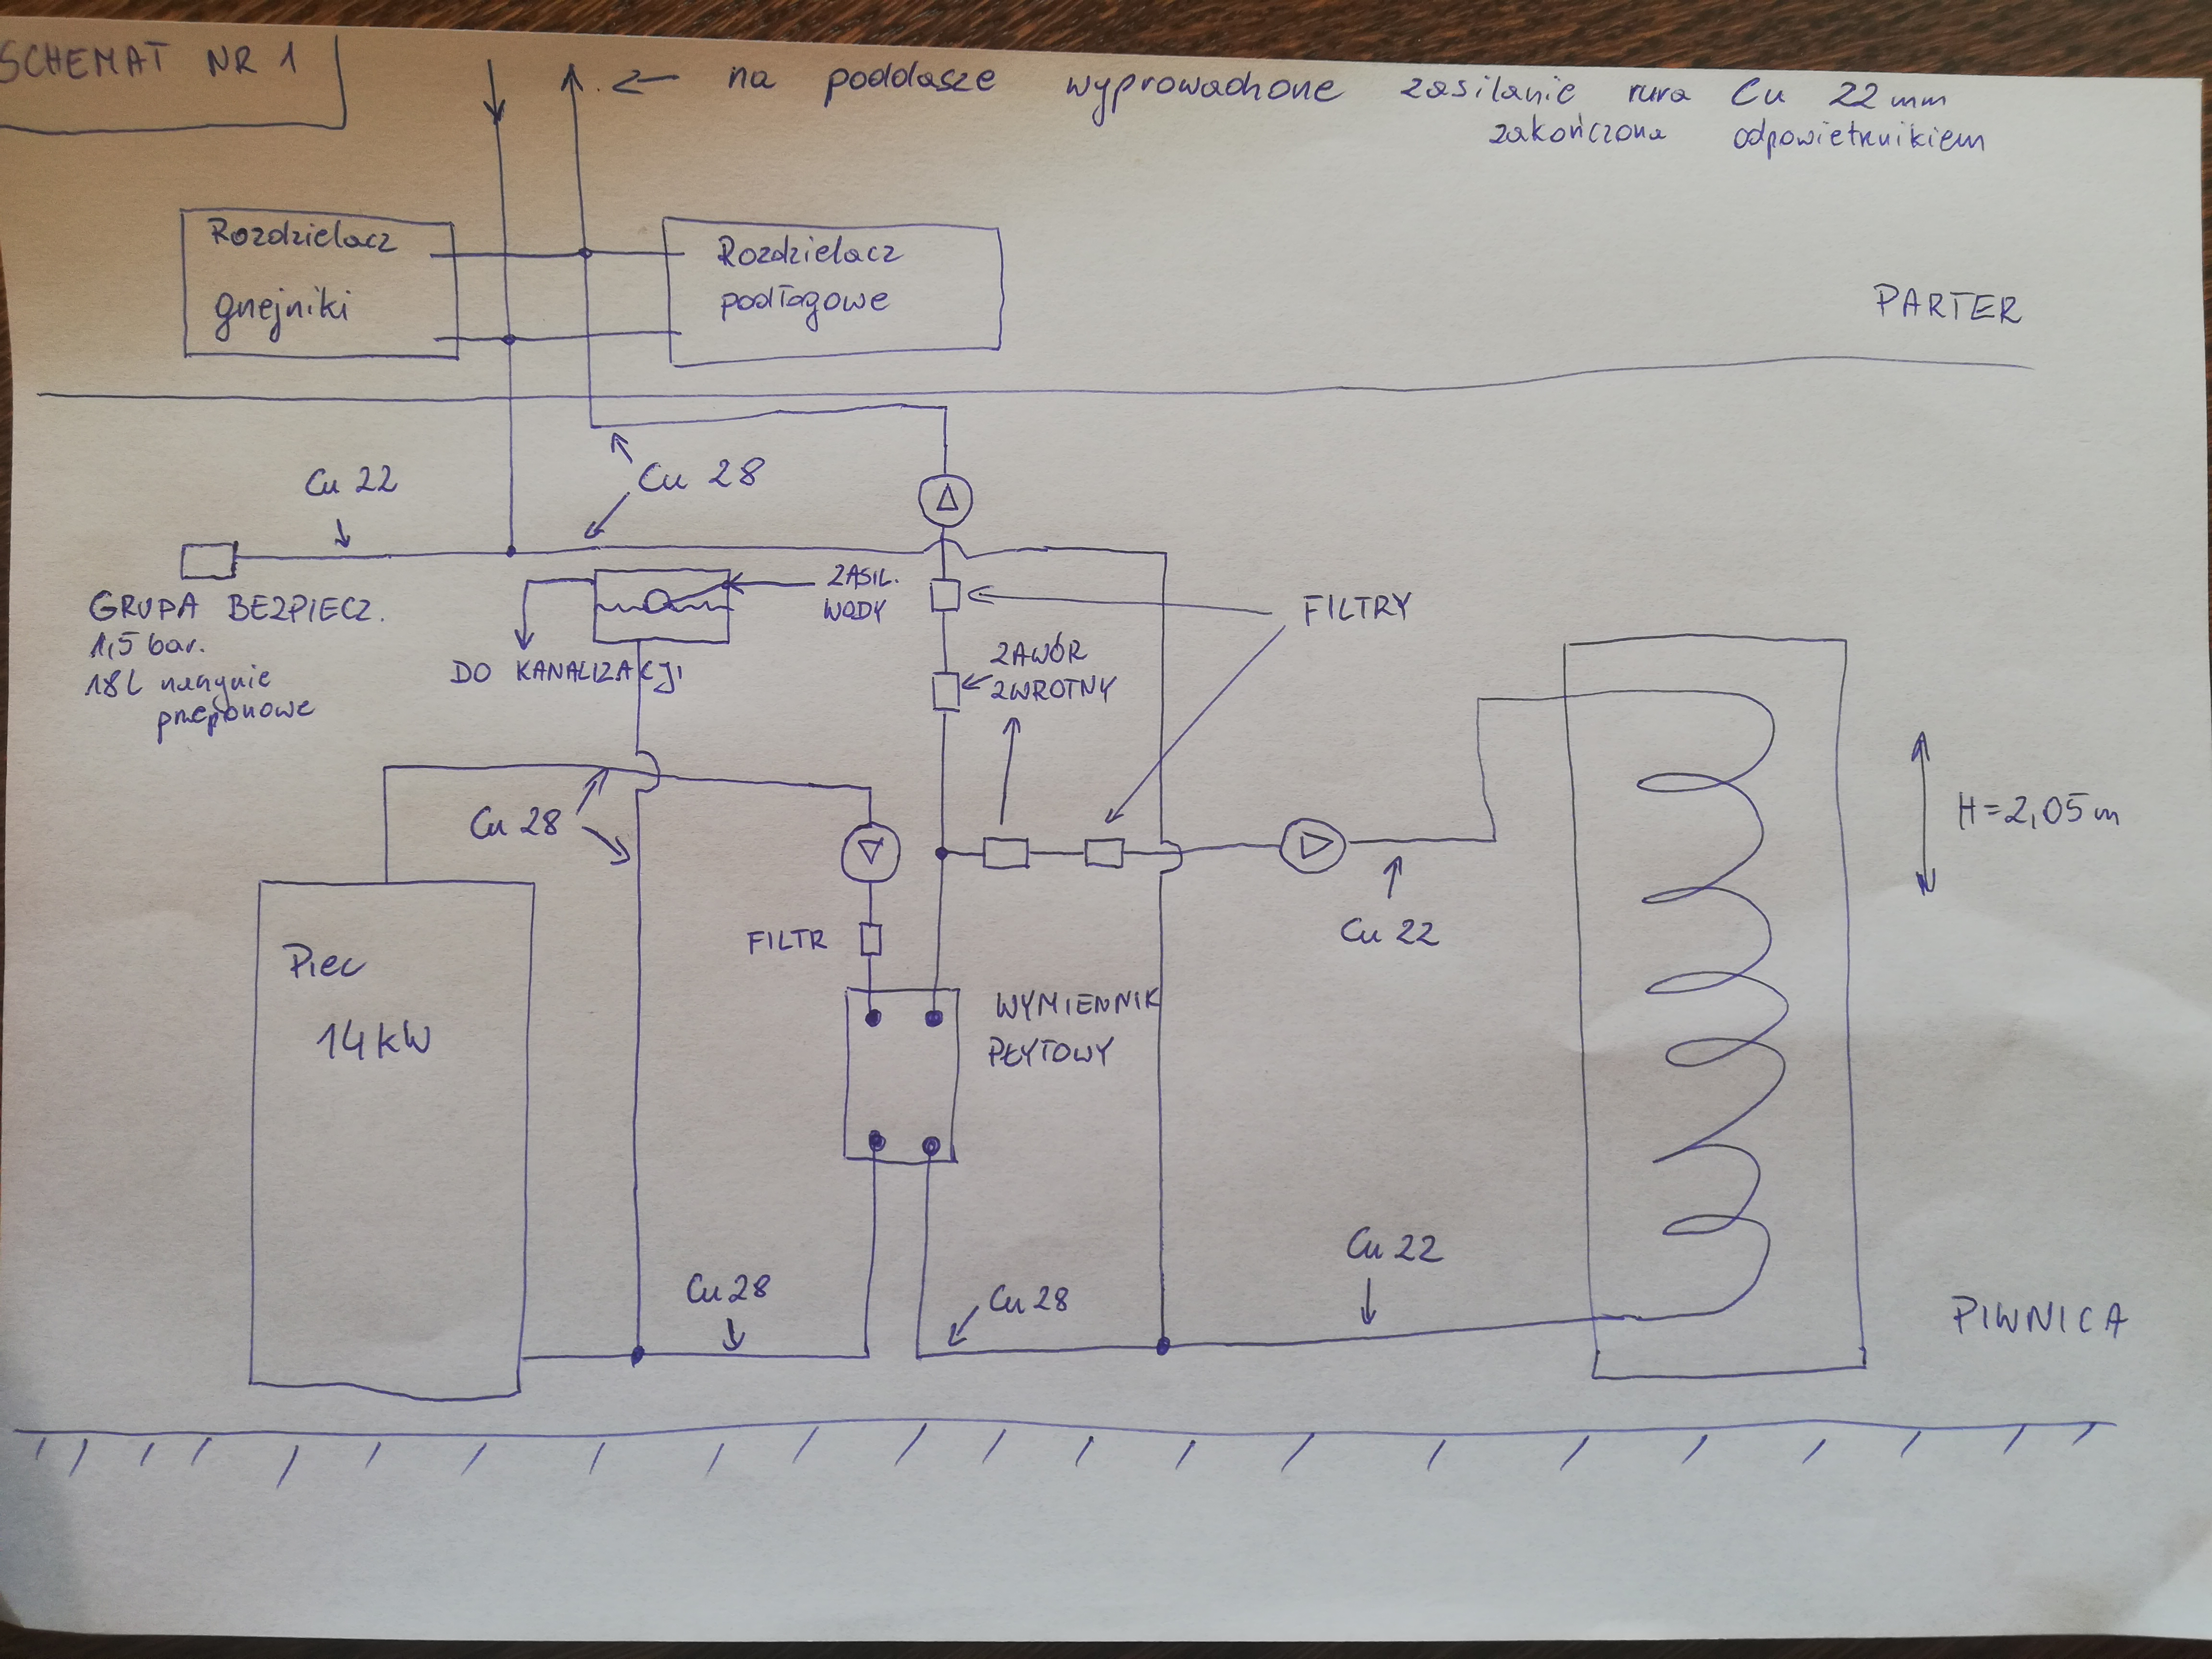 SCHEMAT NR 1
na poddasze wyprowadzone zasilanie rura Cu 22 mm
zakończona odpowietrznikiem
Rozdzielacz
gnejniki
Rozdzielacz
podłogowe
PARTER
Cu 22
Cu 28
GRUPA BEZPIECZ.
1,5 bar.
18L naczynie
przeponowe
ZASIL.
WODY
DO KANALIZACJI
FILTRY
ZAWÓR
ZWROTNY
Cu 28
H=2,05m
FILTR
Cu 22
Piec
14kW
WYMIENNIK
PŁYTOWY
Cu 28
Cu 28
Cu 22
PIWNICA